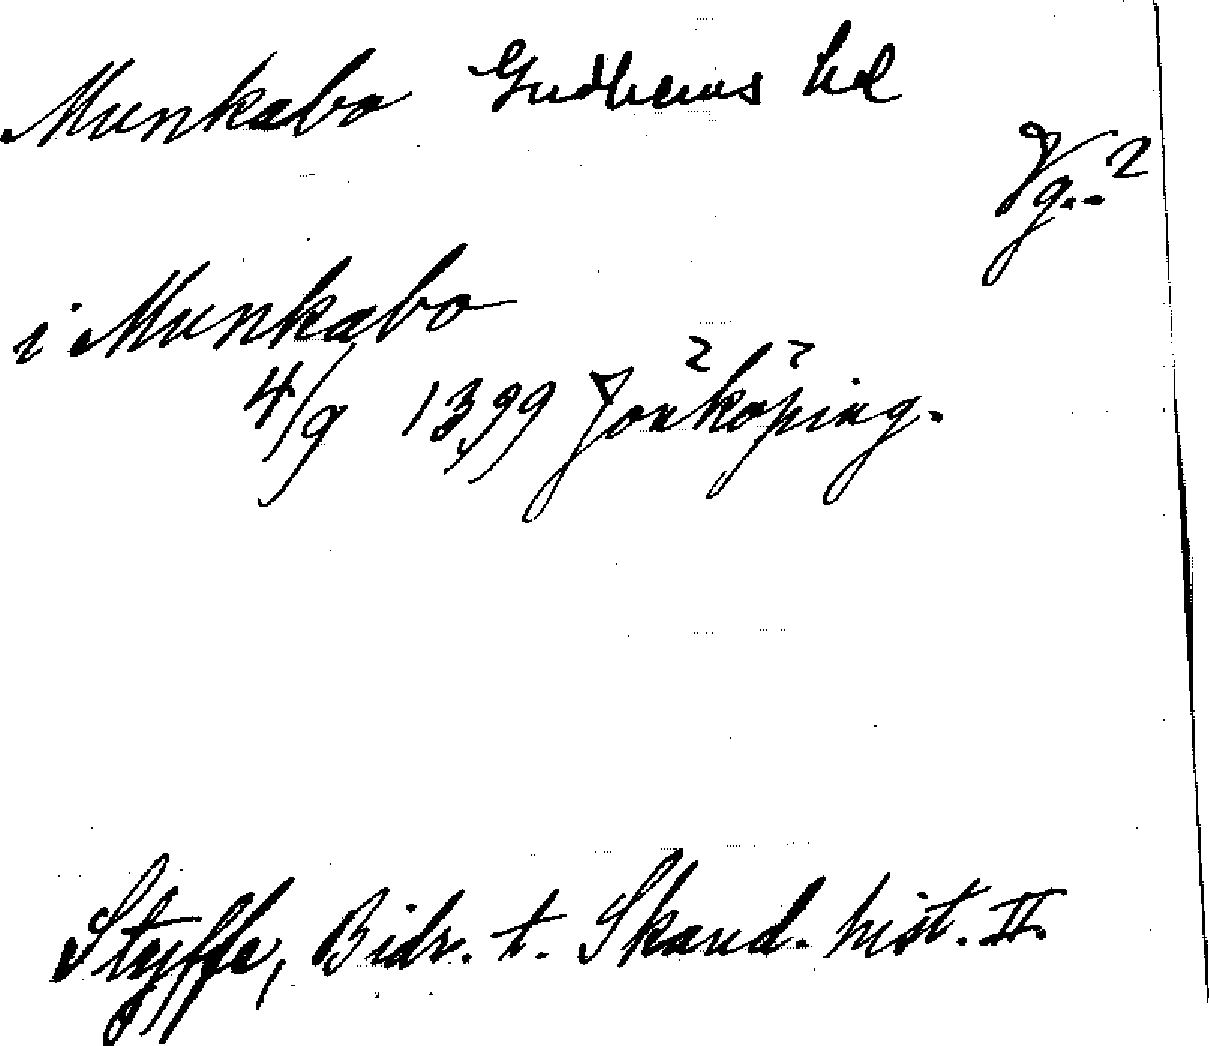 Munkabo Gudhems hd
Vg..?
i Munkabo
4/9 1399 Jönköping.
Styffe, Bidr. t. Skand. hist. II.